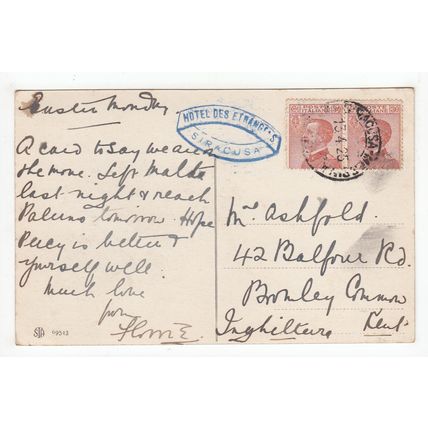 Easter Monday
A card to say we are on
the move. Left Malta
last night & reach
Palermo tomorrow. Hope
Percy is better &
yourself well.
Much love
from
HOTEL DES ETRANGERS
SIRACUSA
13.4.25
Mrs Ashfold.
42 Balfour Rd.
Bromley Common
Inghilterra Kent
STA 69512